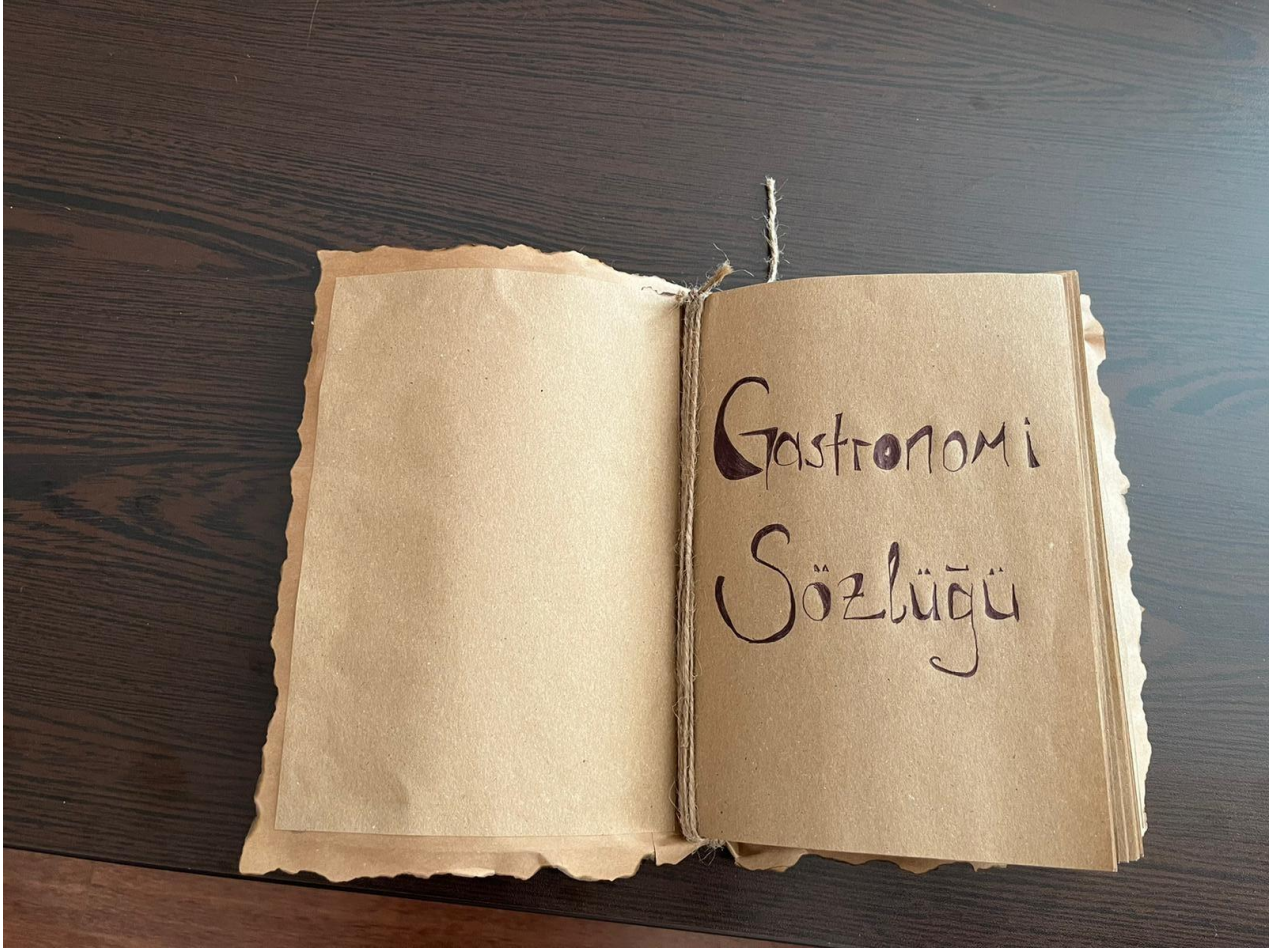 Gastronomi
Sözlüğü